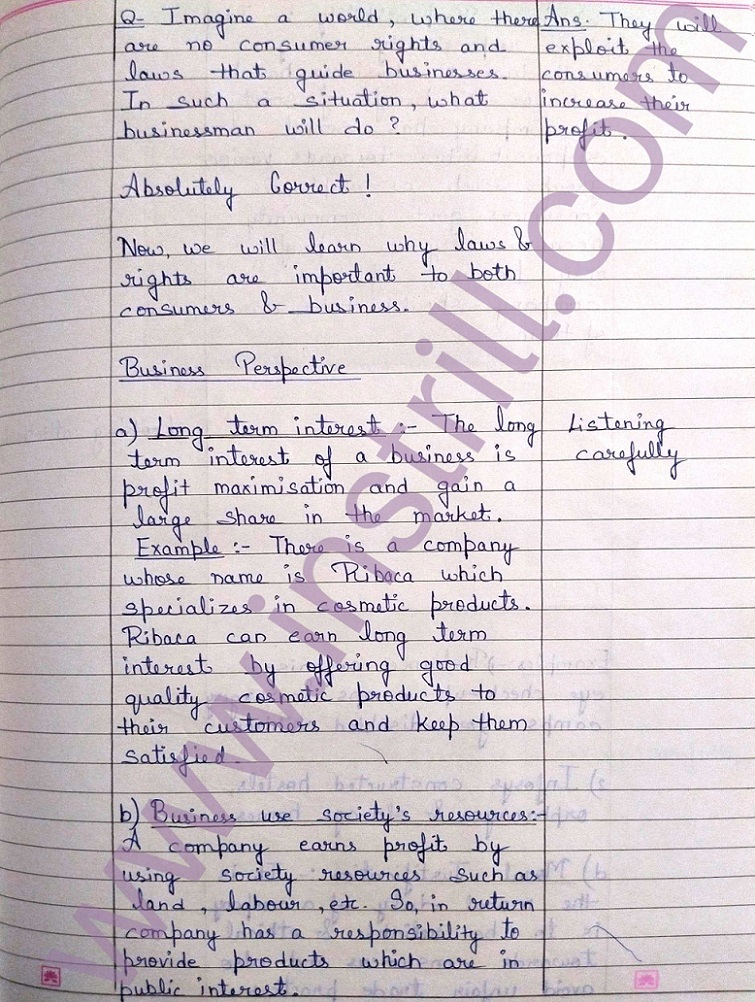 Q- Imagine a world, where there
are no consumer rights and
laws that guide businesses.
In such a situation, what
businessman will do?
Ans. They will
exploit the
consumers to
increase their
profit.
Absolutely Correct!
Now, we will learn why laws &
rights are important to both
consumers & business.
Business Perspective
a) Long term interest :- The long
term interest of a business is
profit maximisation and gain a
large share in the market.
Example :- There is a company
whose name is Ribaca which
specializes in cosmetic products.
Ribaca can earn long term
interest by offering good
quality cosmetic products to
their customers and keep them
satisfied.
Listening
carefully
b) Business use society's resources:-
A company earns profit by
using society resources such as
land, labour, etc. So, in return
company has a responsibility to
provide products which are in
public interest.
www.instrill.com